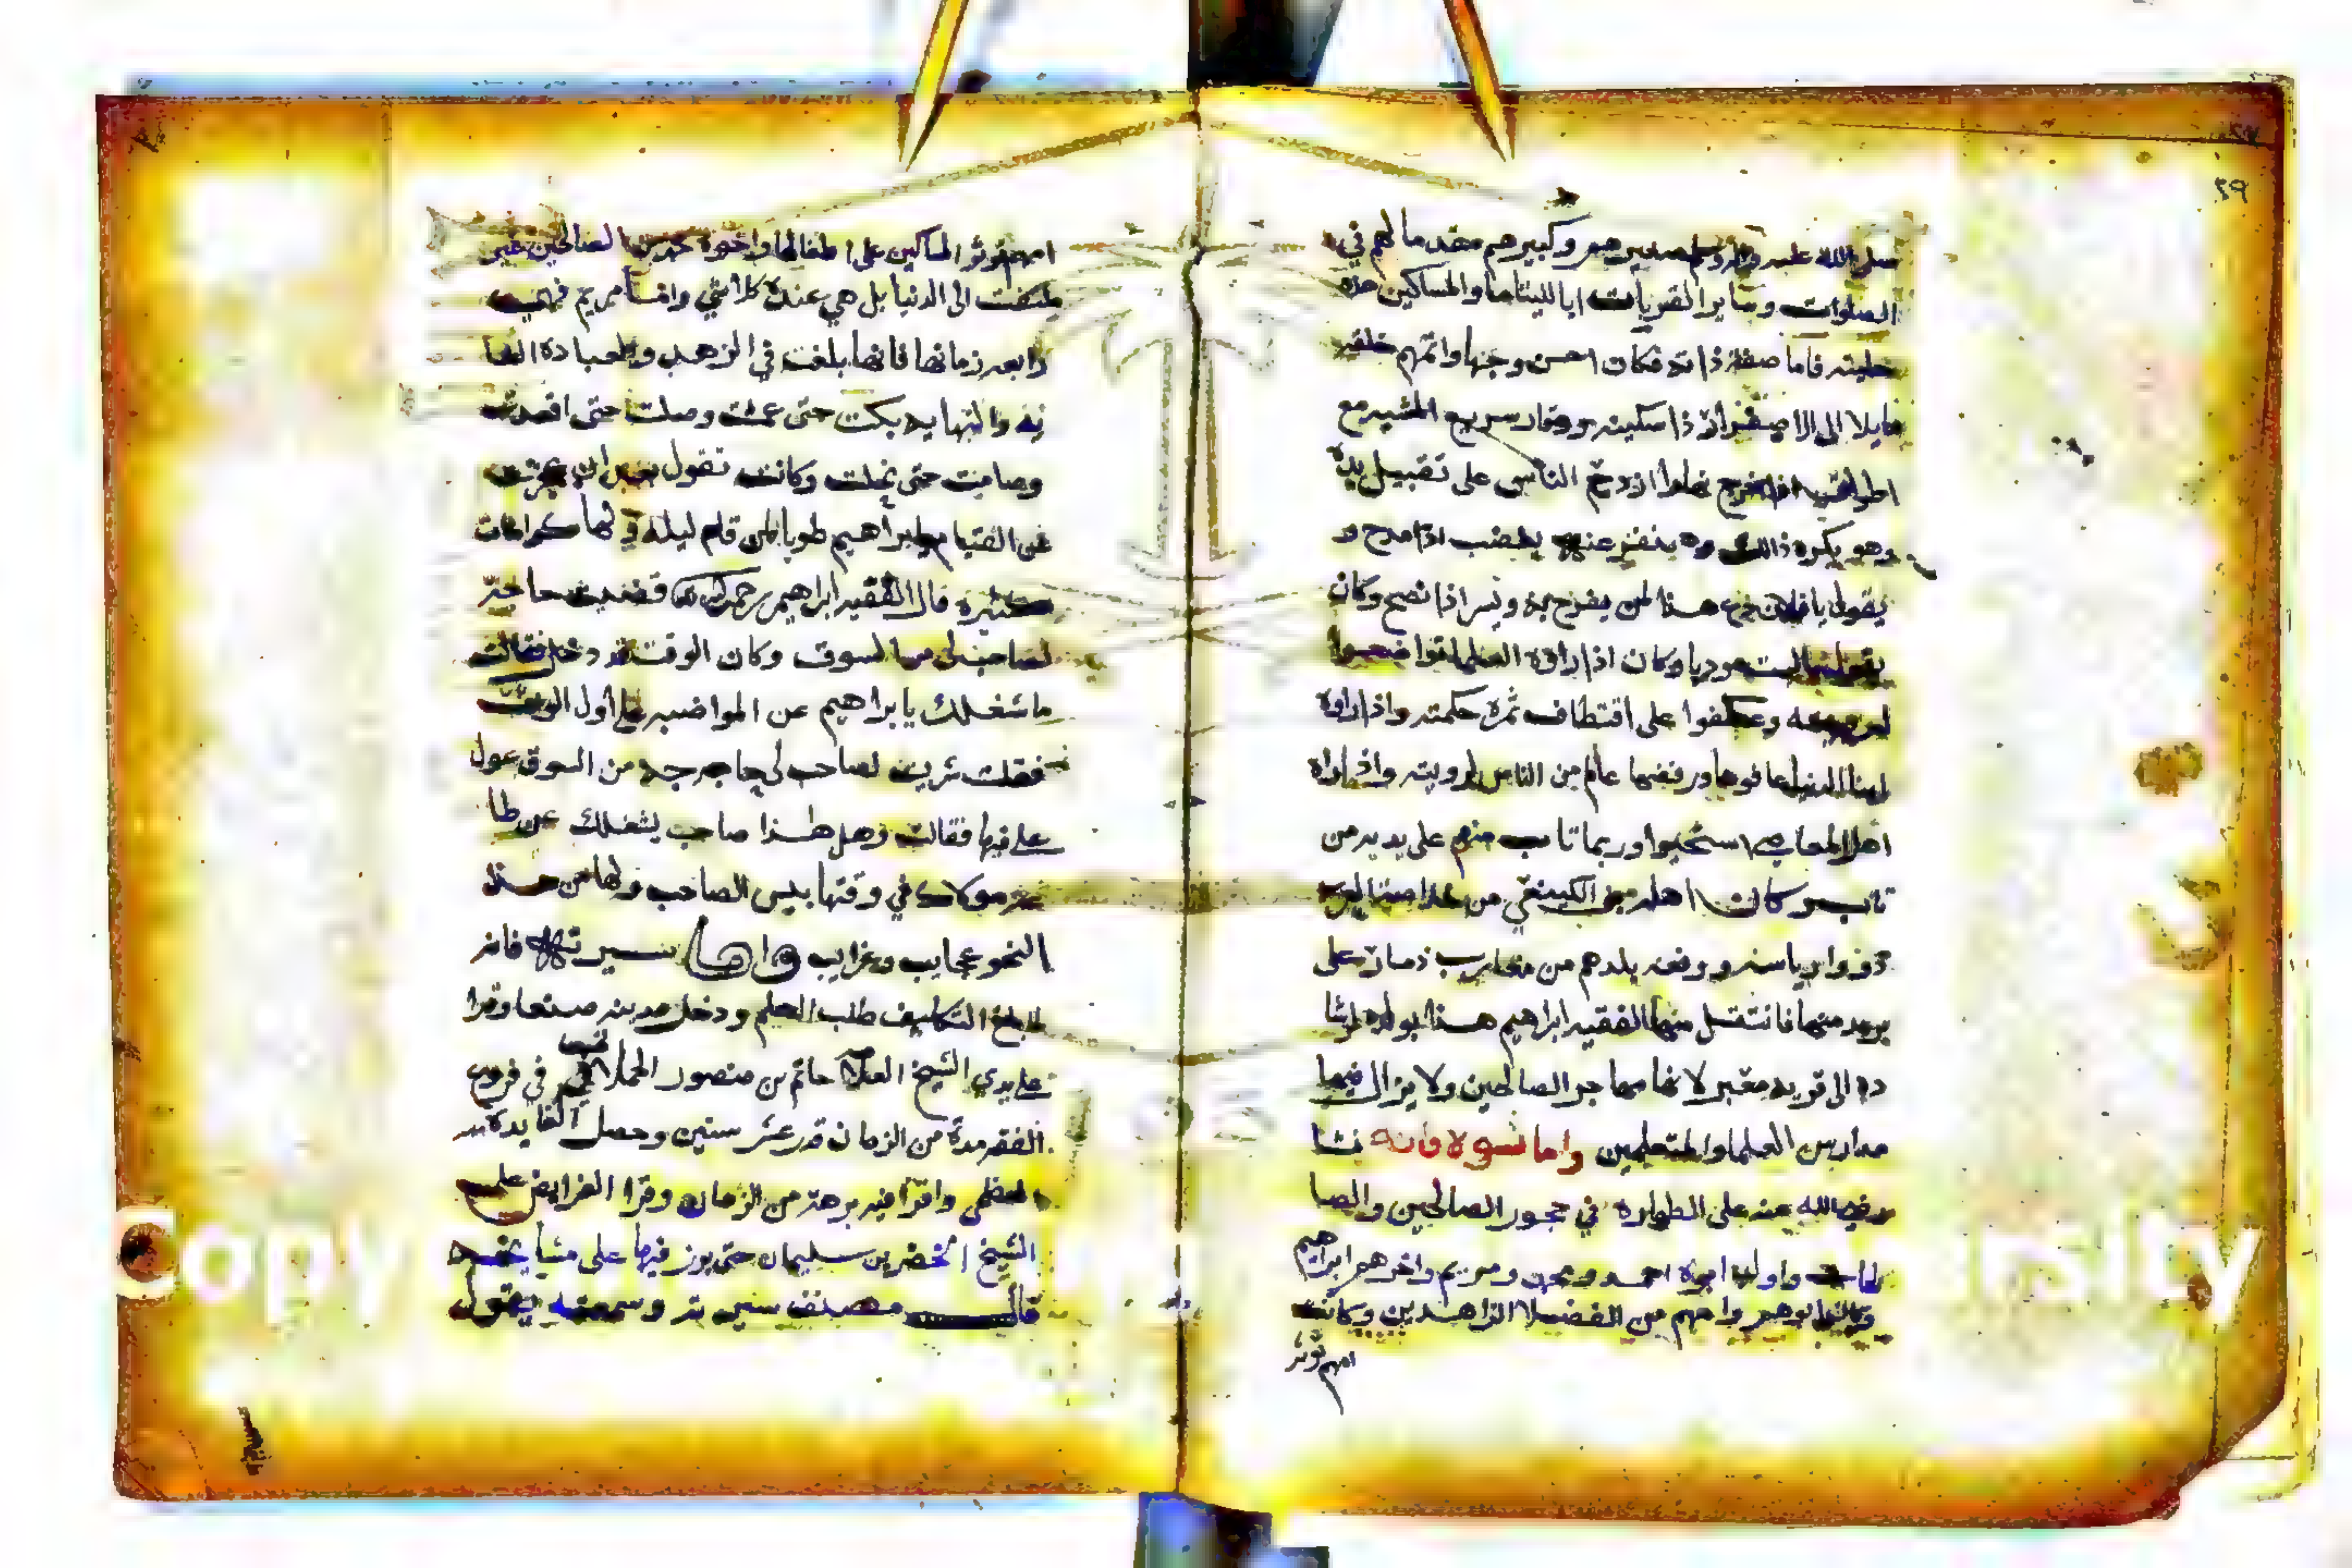 ٢٩
صلى الله عليه واله وسلم صغيرهم وكبيرهم مقدما لهم في
الصلوات وساير القربات ابا لليتاما والمساكين هذه
حليته فاما صفة ذاته فكان احسن وجها واتمهم خلقه
مايلا الى الاصفرار ذا سكينه ووقار سريع المشيه مع
اطراقه اذا خرج نهارا ازدحم الناس على تقبيل يده
وهو يكره ذالك وينفر عنه يغضب اذا مدح و
يقول يا فلان دع هذا لمن يفرح به ويسر اذا نصح وكان
وكان اذا راوه العلما تواضعوا
وعكفوا على اقتطاف ثمرة حكمته واذا راوه
ابنا الدنيا عافوها ورفضها عالم من الناس لرويته واذا راه
اهل المعاصي استحيوا وربما تاب منهم على يديه من
تاب وكان اهله من الكينعي من
ذووا رياسه ورفعه بلدهم من مغارب ذمار على
بريد منها فانتقل منها الفقيه ابراهيم هذا بولده
ده الى قريه معبر لانها مهاجر الصالحين ولا يزال فيها
مدارس العلما والمتعلمين واما نشوه فانه نشا
رضي الله عنه على الطهاره في حجور الصالحين والصا
لحات واولد ابوه احمد ومريم واخرهم ابراهيم
ابوهم وامهم من الفضلا الزاهدين وكانت
امهم توثر
امهم توثر المساكين على اطفالها واخوه من الصالحين غير
ملتفت الى الدنيا بل هي عنده كلا شي واما مريم فهي
رابعه زمانها فانها بلغت في الزهد والعباده الغا
يه والنهايه بكت حتى عمت وصلت حتى اقعدت
وصامت حتى نحلت وكانت تقول
عن القيام يا ابراهيم طوبا لمن قام ليله ولها كرامات
كثيره قال الفقيه ابراهيم رحمه الله قضيت حاجة
لصاحب لي من السوق وكان الوقت قد دخل فقالت
ما شغلك يا براهيم عن المواضبه على اول الوقت
فقلت شريت لصاحب لي حاجه من السوق عول
علي فيها فقالت وهل هذا صاحب يشغلك عن طا
عة مولاك في وقتها بيس الصاحب ولها من هذا
النحو عجايب وغرايب واما سيرته فانه
لما بلغ التكليف طلب العلم ودخل مدينه صنعا وقرا
على يدي الشيخ العلا حاتم بن منصور الحملاني في فروع
الفقه مدة من الزمان قدر عشر سنين وحصل الفايده
العظمى واقرا فيه برهة من الزمان وقرا الفرايض على
الشيخ الخضر بن سليمان حتى برز فيها على مشايخه
قال مصنف سيرته وسمعته يقول